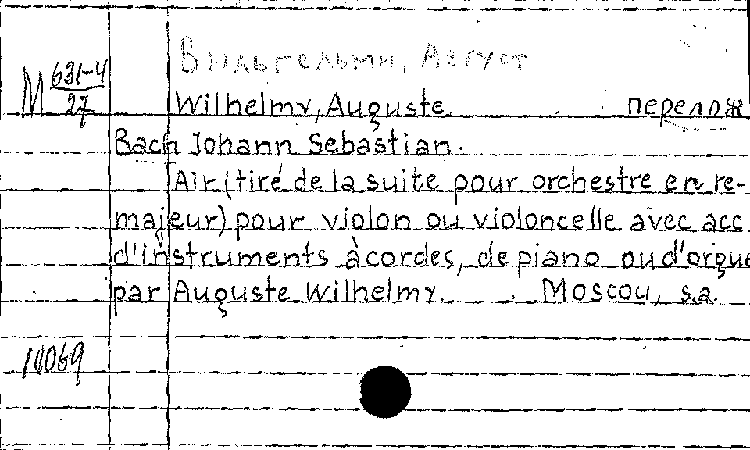 Вильгельми, Август
М 631-4/27
Wilhelmy, Auguste перелож
Bach Johann Sebastian.
Air (tiré de la suite pour orchestre en re-
majeur) pour violon ou violoncelle avec acc
d'instruments àcordes, de piano ou d'orgue
par Auguste Wilhelmy. Moscou, s.a.